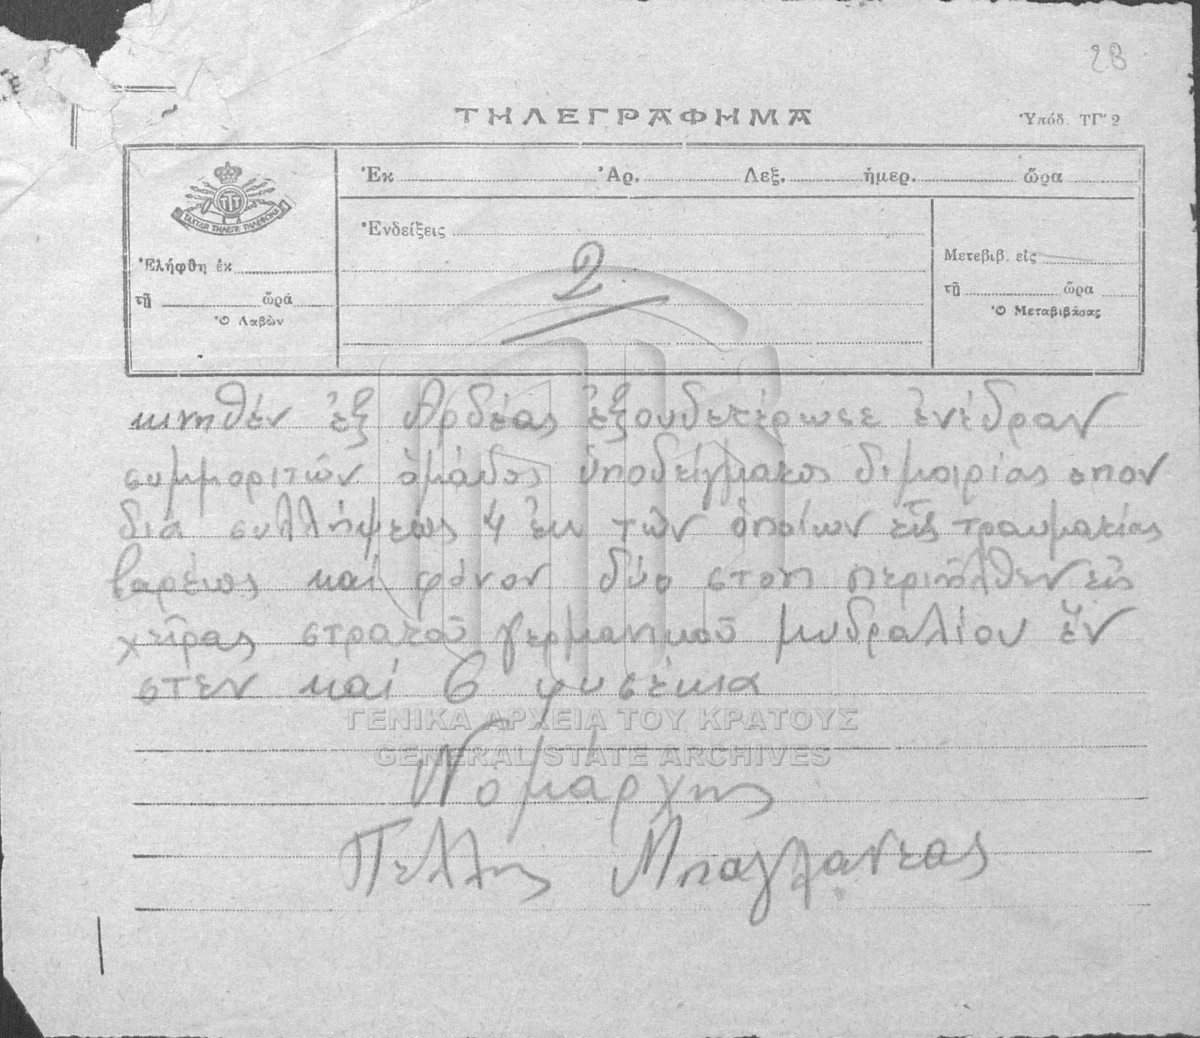 2B
ΤΗΛΕΓΡΑΦΗΜΑ
Ὑπόδ. ΤΓ' 2
Ἐκ Ἀρ. Λεξ. ἡμερ. ὥρα
ΤΑΧΥΔΡ ΤΗΛΕΓΡ ΤΗΛΕΦΩΝΑ
Ἐλήφθη ἐκ
τῇ ὥρᾳ
Ὁ Λαβὼν
Ἐνδείξεις
2
Μετεβιβ. εἰς
τῇ ὥρα
Ὁ Μεταβιβάσας
κινηθέν ἐξ Ἀρδέας ἐξουδετέρωσε ἐνέδραν
συμμοριτῶν ὁμάδος ὑποδείγματος διμοιρίας
διά συλλήψεως 4 ἐκ τῶν ὁποίων εἷς τραυματίας
βαρέως καί φόνον δύο στοπ περιῆλθεν εἰς
χεῖρας στρατοῦ γερμανικοῦ μυδραλίου ἕν
στεν καί 6 φυσέκια
ΓΕΝΙΚΑ ΑΡΧΕΙΑ ΤΟΥ ΚΡΑΤΟΥΣ
GENERAL STATE ARCHIVES
Νομάρχης
Πέλλης Μπαγλανέας